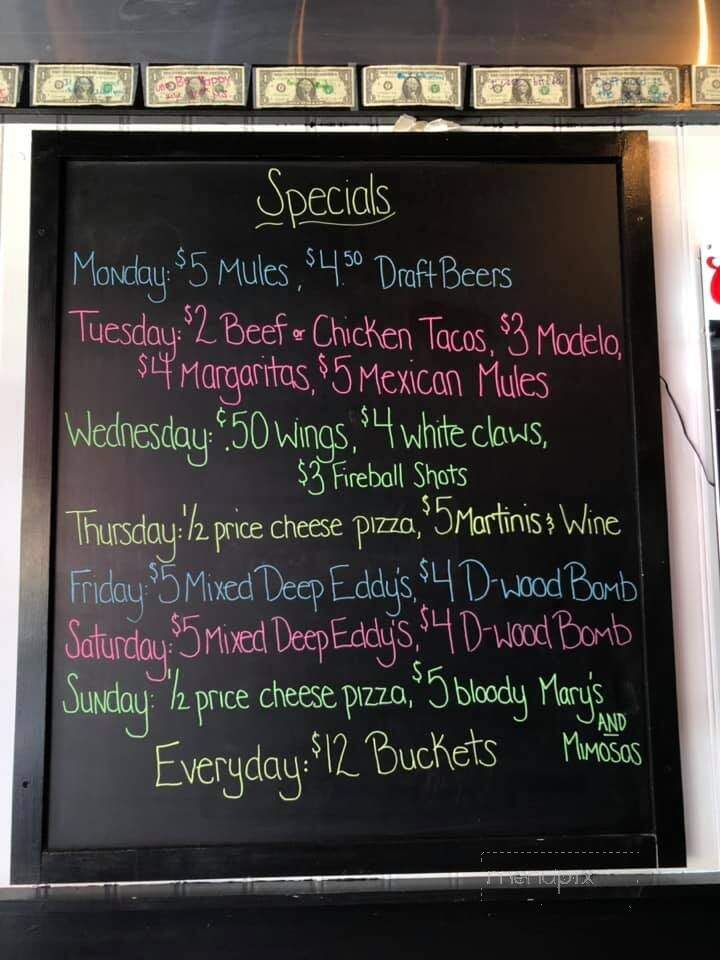 Specials
Monday: $5 Mules, $4.50 Draft Beers
Tuesday: $2 Beef or Chicken Tacos, $3 Modelo,
$4 Margaritas, $5 Mexican Mules
Wednesday: $.50 wings, $4 white claws,
$3 Fireball Shots
Thursday: 1/2 price cheese pizza, $5 Martinis & Wine
Friday: $5 Mixed Deep Eddy's, $4 D-wood Bomb
Saturday: $5 Mixed Deep Eddy's, $4 D-wood Bomb
Sunday: 1/2 price cheese pizza, $5 bloody Mary's
AND
Mimosas
Everyday: $12 Buckets
menupix